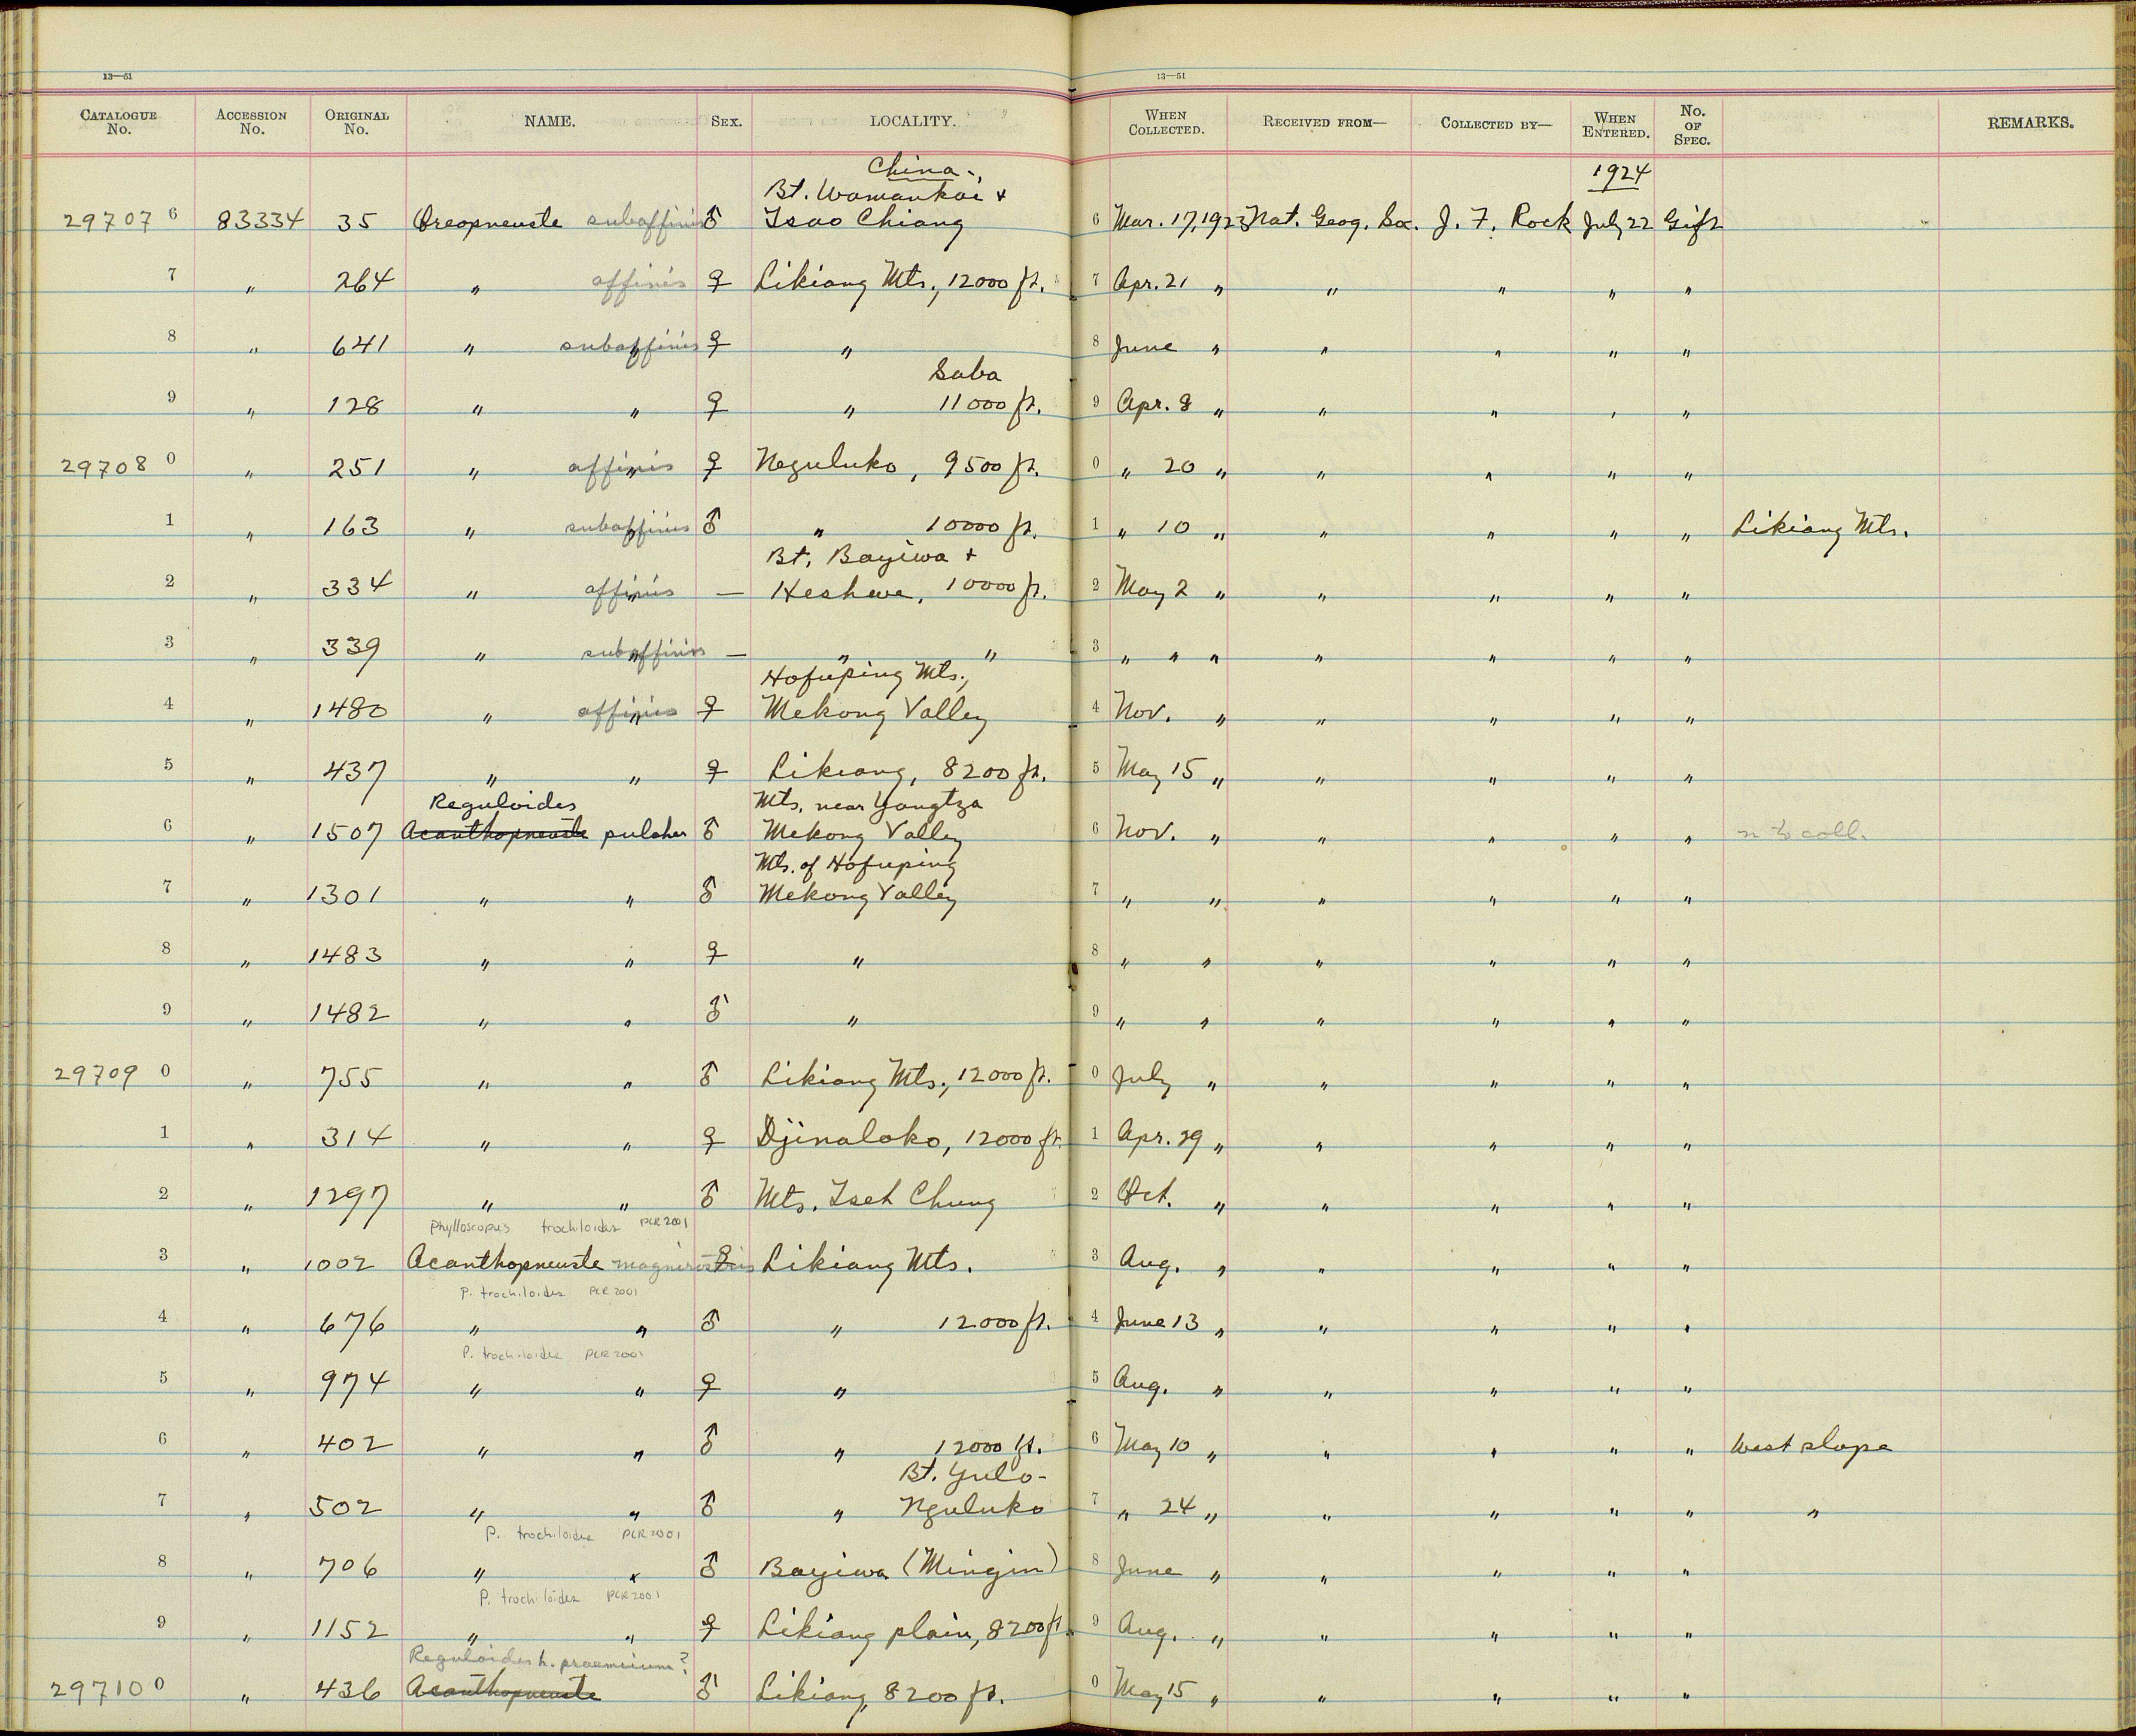 13—51 13—51
CATALOGUE No. ACCESSION No. ORIGINAL No. NAME. SEX. LOCALITY. WHEN COLLECTED. RECEIVED FROM— COLLECTED BY— WHEN ENTERED. No. OF SPEC. REMARKS.
China., 1924
Bt. Womankai +
29707 6 83334 35 Oreopneuste subaffinis ♂ Tsao Chiang 6 Mar. 17, 1923 Nat. Geog. Soc. J. F. Rock July 22 Gift
7 " 264 " affinis ♀ Likiang Mts., 12000 ft. 7 Apr. 21 " " " " "
8 " 641 " subaffinis ♀ " 8 June " " " " "
Saba
9 " 128 " " ♀ " 11000 ft. 9 Apr. 8 " " " " "
29708 0 " 251 " affinis ♀ Neguluko, 9500 ft. 0 " 20 " " " " "
1 " 163 " subaffinis ♂ " 10000 ft. 1 " 10 " " " " " Likiang Mts.
Bt. Bayiwa +
2 " 334 " affinis — Heshwe, 10000 ft. 2 May 2 " " " " "
3 " 339 " subaffinis — " " 3 " " " " " " "
Hofuping Mts.,
4 " 1480 " affinis ♀ Mekong Valley 4 Nov. " " " " "
5 " 437 " " ♀ Likiang, 8200 ft. 5 May 15 " " " " "
Reguloides Mts. near Yangtza
6 " 1507 Acanthopneuste pulcher ♂ Mekong Valley 6 Nov. " " " " " coll.
Mts. of Hofuping
7 " 1301 " " ♂ Mekong Valley 7 " " " " " "
8 " 1483 " " ♀ " 8 " " " " " "
9 " 1482 " " ♂ " 9 " " " " " "
29709 0 " 755 " " ♂ Likiang Mts., 12000 ft. 0 July " " " " "
1 " 314 " " ♀ Djinaloko, 12000 ft. 1 Apr. 29 " " " " "
2 " 1297 " " ♂ Mts. Tseh Chung 2 Oct. " " " " "
Phylloscopus trochiloides PCR 2001
3 " 1002 Acanthopneuste magnirostris ♀ Likiang Mts. 3 Aug. " " " " "
P. trochiloides PCR 2001
4 " 676 " " ♂ " 12000 ft. 4 June 13 " " " " "
P. trochiloides PCR 2001
5 " 974 " " ♀ " 5 Aug. " " " " "
6 " 402 " " ♂ " 12000 ft. 6 May 10 " " " " " West slope
Bt. Yulo-
7 " 502 " " ♂ " Nguluko 7 " 24 " " " " " "
P. trochiloides PCR 2001
8 " 706 " " ♂ Bayiwa (Mingin) 8 June " " " " "
P. trochiloides PCR 2001
9 " 1152 " " ♀ Likiang plain, 8200 ft. 9 Aug. " " " " "
Reguloides h. praemium?
29710 0 " 436 Acanthopneuste ♂ Likiang, 8200 ft. 0 May 15 " " " " "